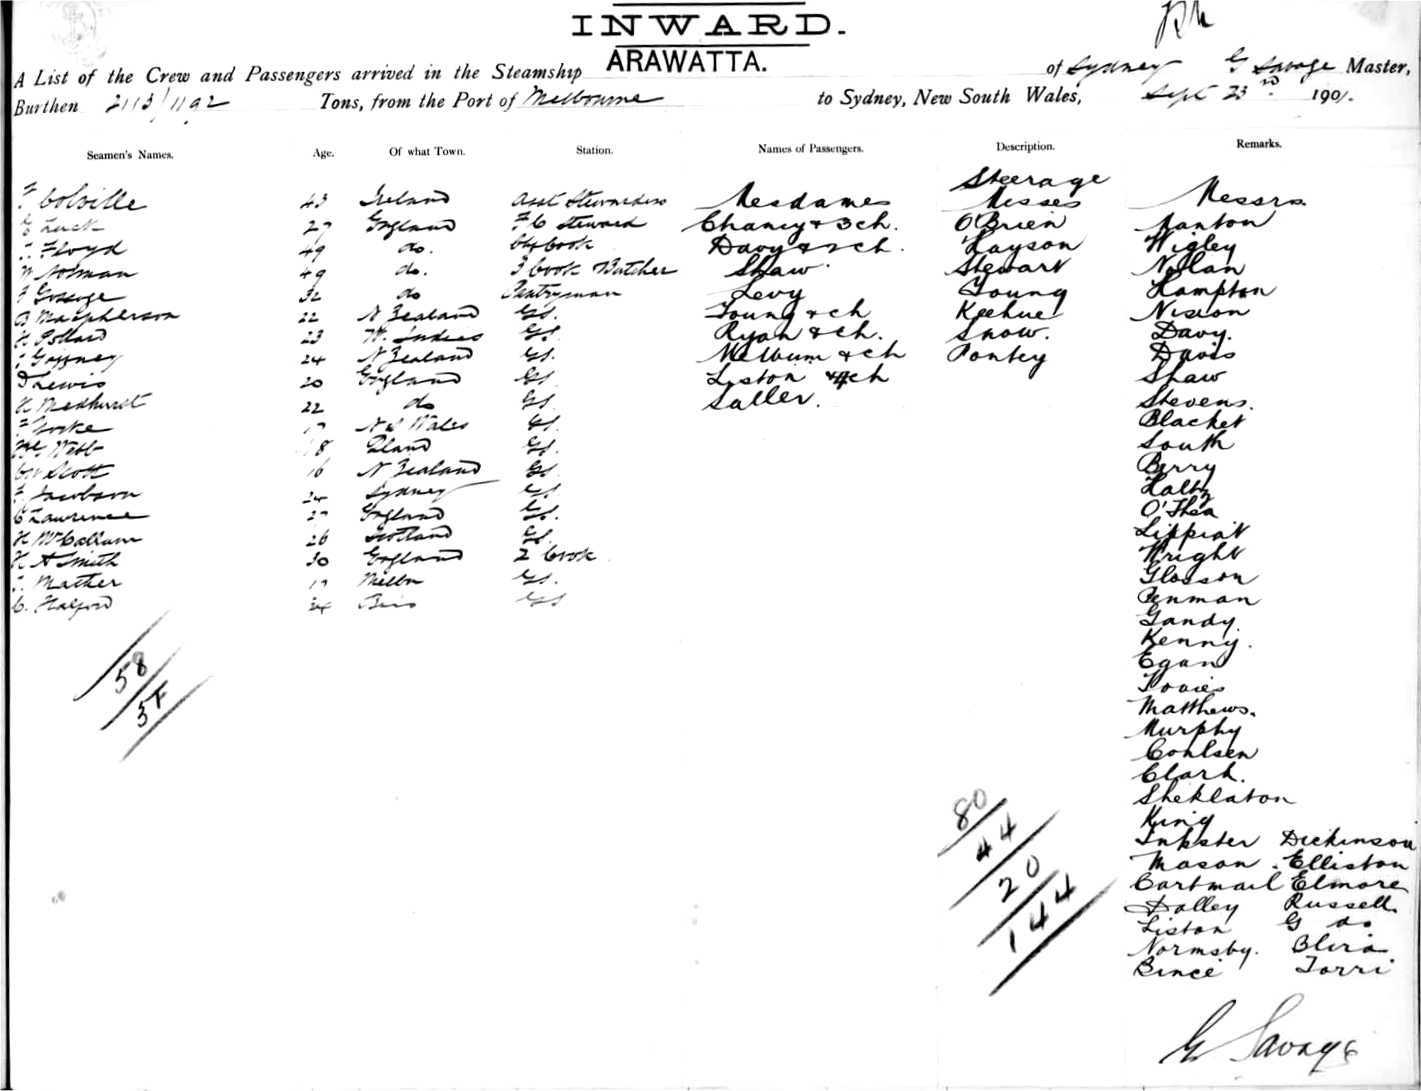 INWARD.
ARAWATTA.
A List of the Crew and Passengers arrived in the Steamship of Sydney G Savage Master,
Burthen 2113/1192 Tons, from the Port of Melbourne to Sydney, New South Wales, Sept 23rd 1901.
Seamen's Names. Age. Of what Town. Station. Names of Passengers. Description. Remarks.
Steerage
F Colville 43 Ireland Asst Stewardess Mesdames Misses Messrs.
Luck 27 England F C Steward Chaney & 3 ch. O'Brien Manton
Floyd 49 do. Cook Davy & 2 ch. Hayson Wigley
Norman 49 do. 3 Cook Butcher Shaw. Stewart Nollan
George 32 do Pantryman Levy Young Hampton
Macpherson 22 N Zealand GS. Young & ch Keehue Nision
Pollard 23 W. Indies GS. Ryan & ch. Snow. Davy.
Gaffney 24 N Zealand GS. Melvum & ch Pontey Davis
Lewis 20 England GS Liston & 4 ch Shaw
H Medhurst 22 do GS Saller. Stevens.
Yorke 17 N S Wales GS. Blacket
Webb 18 GS. South
W Scott 16 N Zealand GS. Berry
F. Jacobson 24 Sydney GS. Haltz
C Lawrence 27 England GS. O'Shea
H McCallum 26 Scotland GS. Lippiat
H A Smith 30 England 2 Cook Wright
Mather 17 Melbn GS. Glosson
C. Halford 24 Bris GS Penman
Gandy.
Kenny.
Egan
58
Matthews.
34
Murphy
Coulsen
Clark.
80
Sheklaton
King
44
Inkster Dickinson
Mason. Elliston
20
Cartmail Elmore
144
Dolley Russell.
Liston G do
Normsby. Blira
Bincé Torri
G Savage